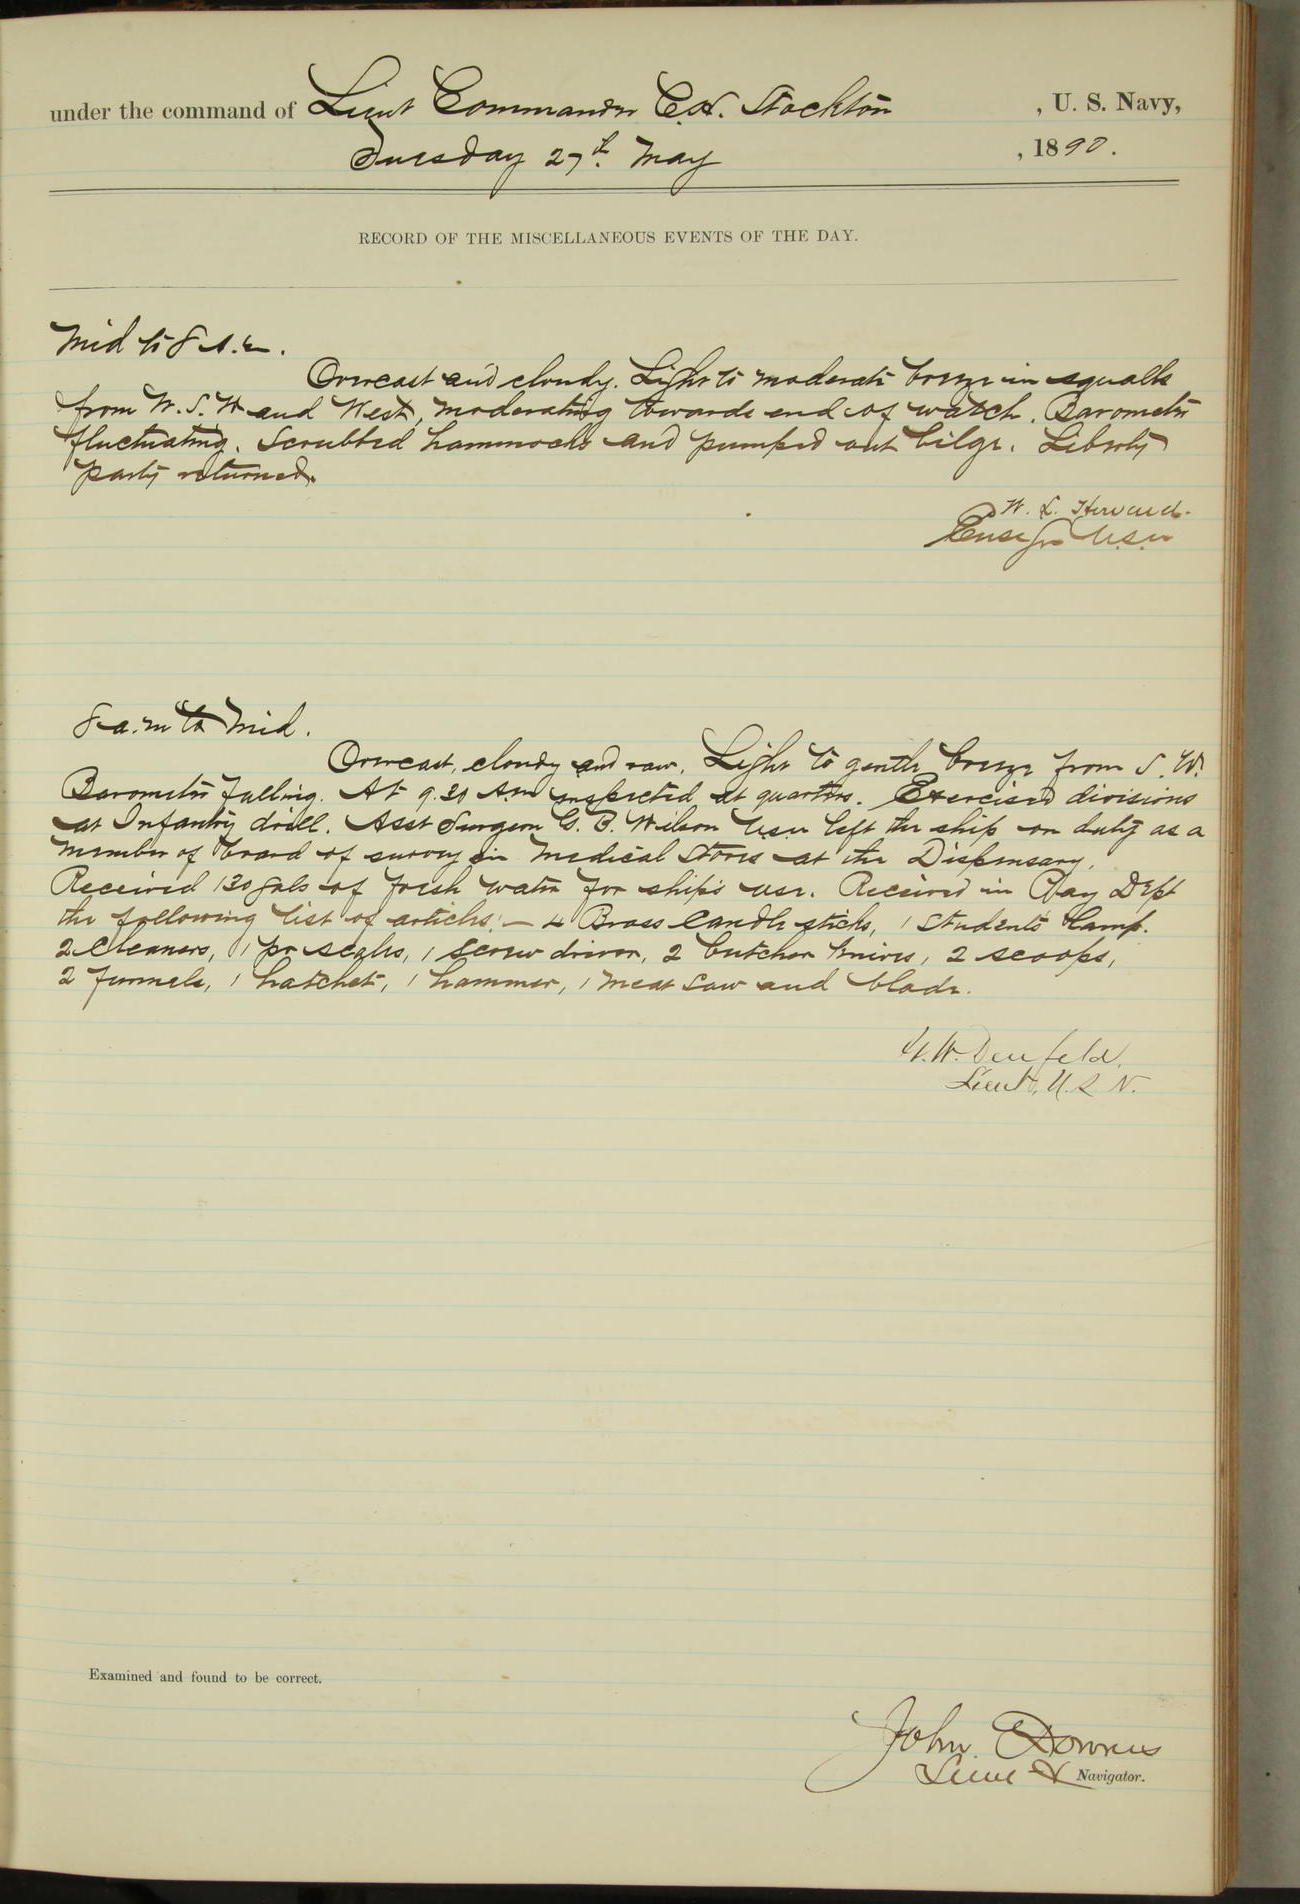 under the command of Lieut Commander C.H. Stockton , U. S. Navy,
Tuesday 27th May , 1890.
RECORD OF THE MISCELLANEOUS EVENTS OF THE DAY.
Mid to 8 A.m.
Overcast and cloudy. Light to moderate breeze in squalls
from W.S.W and West, moderating towards end of watch. Barometer
fluctuating. Scrubbed hammocks and pumped out bilge. Liberty
party returned.
W. L. Howard.
Ensign U.S.N
8 a.m to Mid.
Overcast, cloudy and raw. Light to gentle breeze from S.W.
Barometer falling. At 9.30 A.m inspected at quarters. Exercised divisions
at Infantry drill. Asst Surgeon G. B. Wilson U.S.N left the ship on duty as a
member of board of survey in Medical Stores at the Dispensary.
Received 130 gals of fresh water for ship's use. Received in Pay Dept
the following list of articles:— 4 Brass Candle sticks, 1 Students Lamp.
2 Cleavers, 1 pr scales, 1 screw driver, 2 butcher knives, 2 scoops,
2 funnels, 1 hatchet, 1 hammer, 1 meat saw and blade.
G.W. Denfeld.
Lieut, U.S.N.
Examined and found to be correct.
John Downes
Lieut & Navigator.